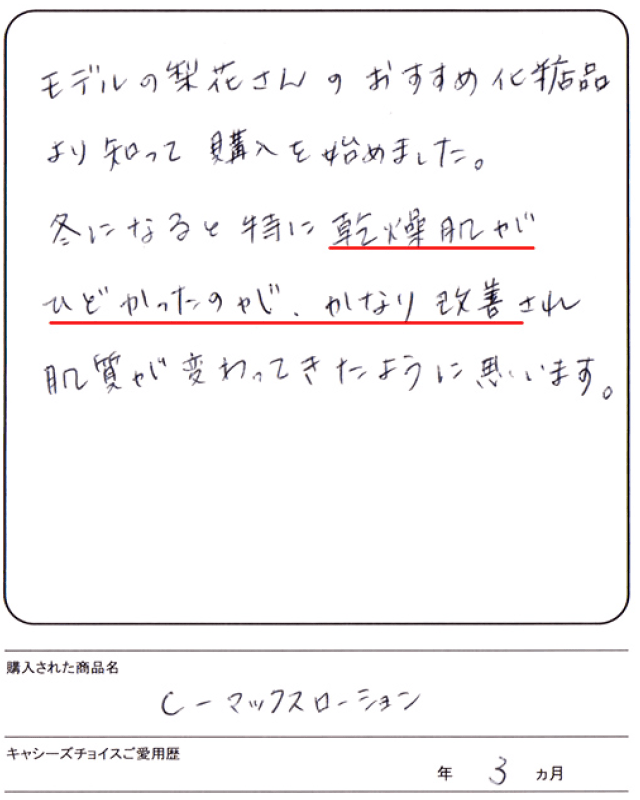 モデルの梨花さんのおすすめ化粧品
より知って購入を始めました。
冬になると特に乾燥肌が
ひどかったのが、かなり改善され
肌質が変わってきたように思います。
購入された商品名
C-マックスローション
キャシーズチョイスご愛用歴
年 3 ヵ月